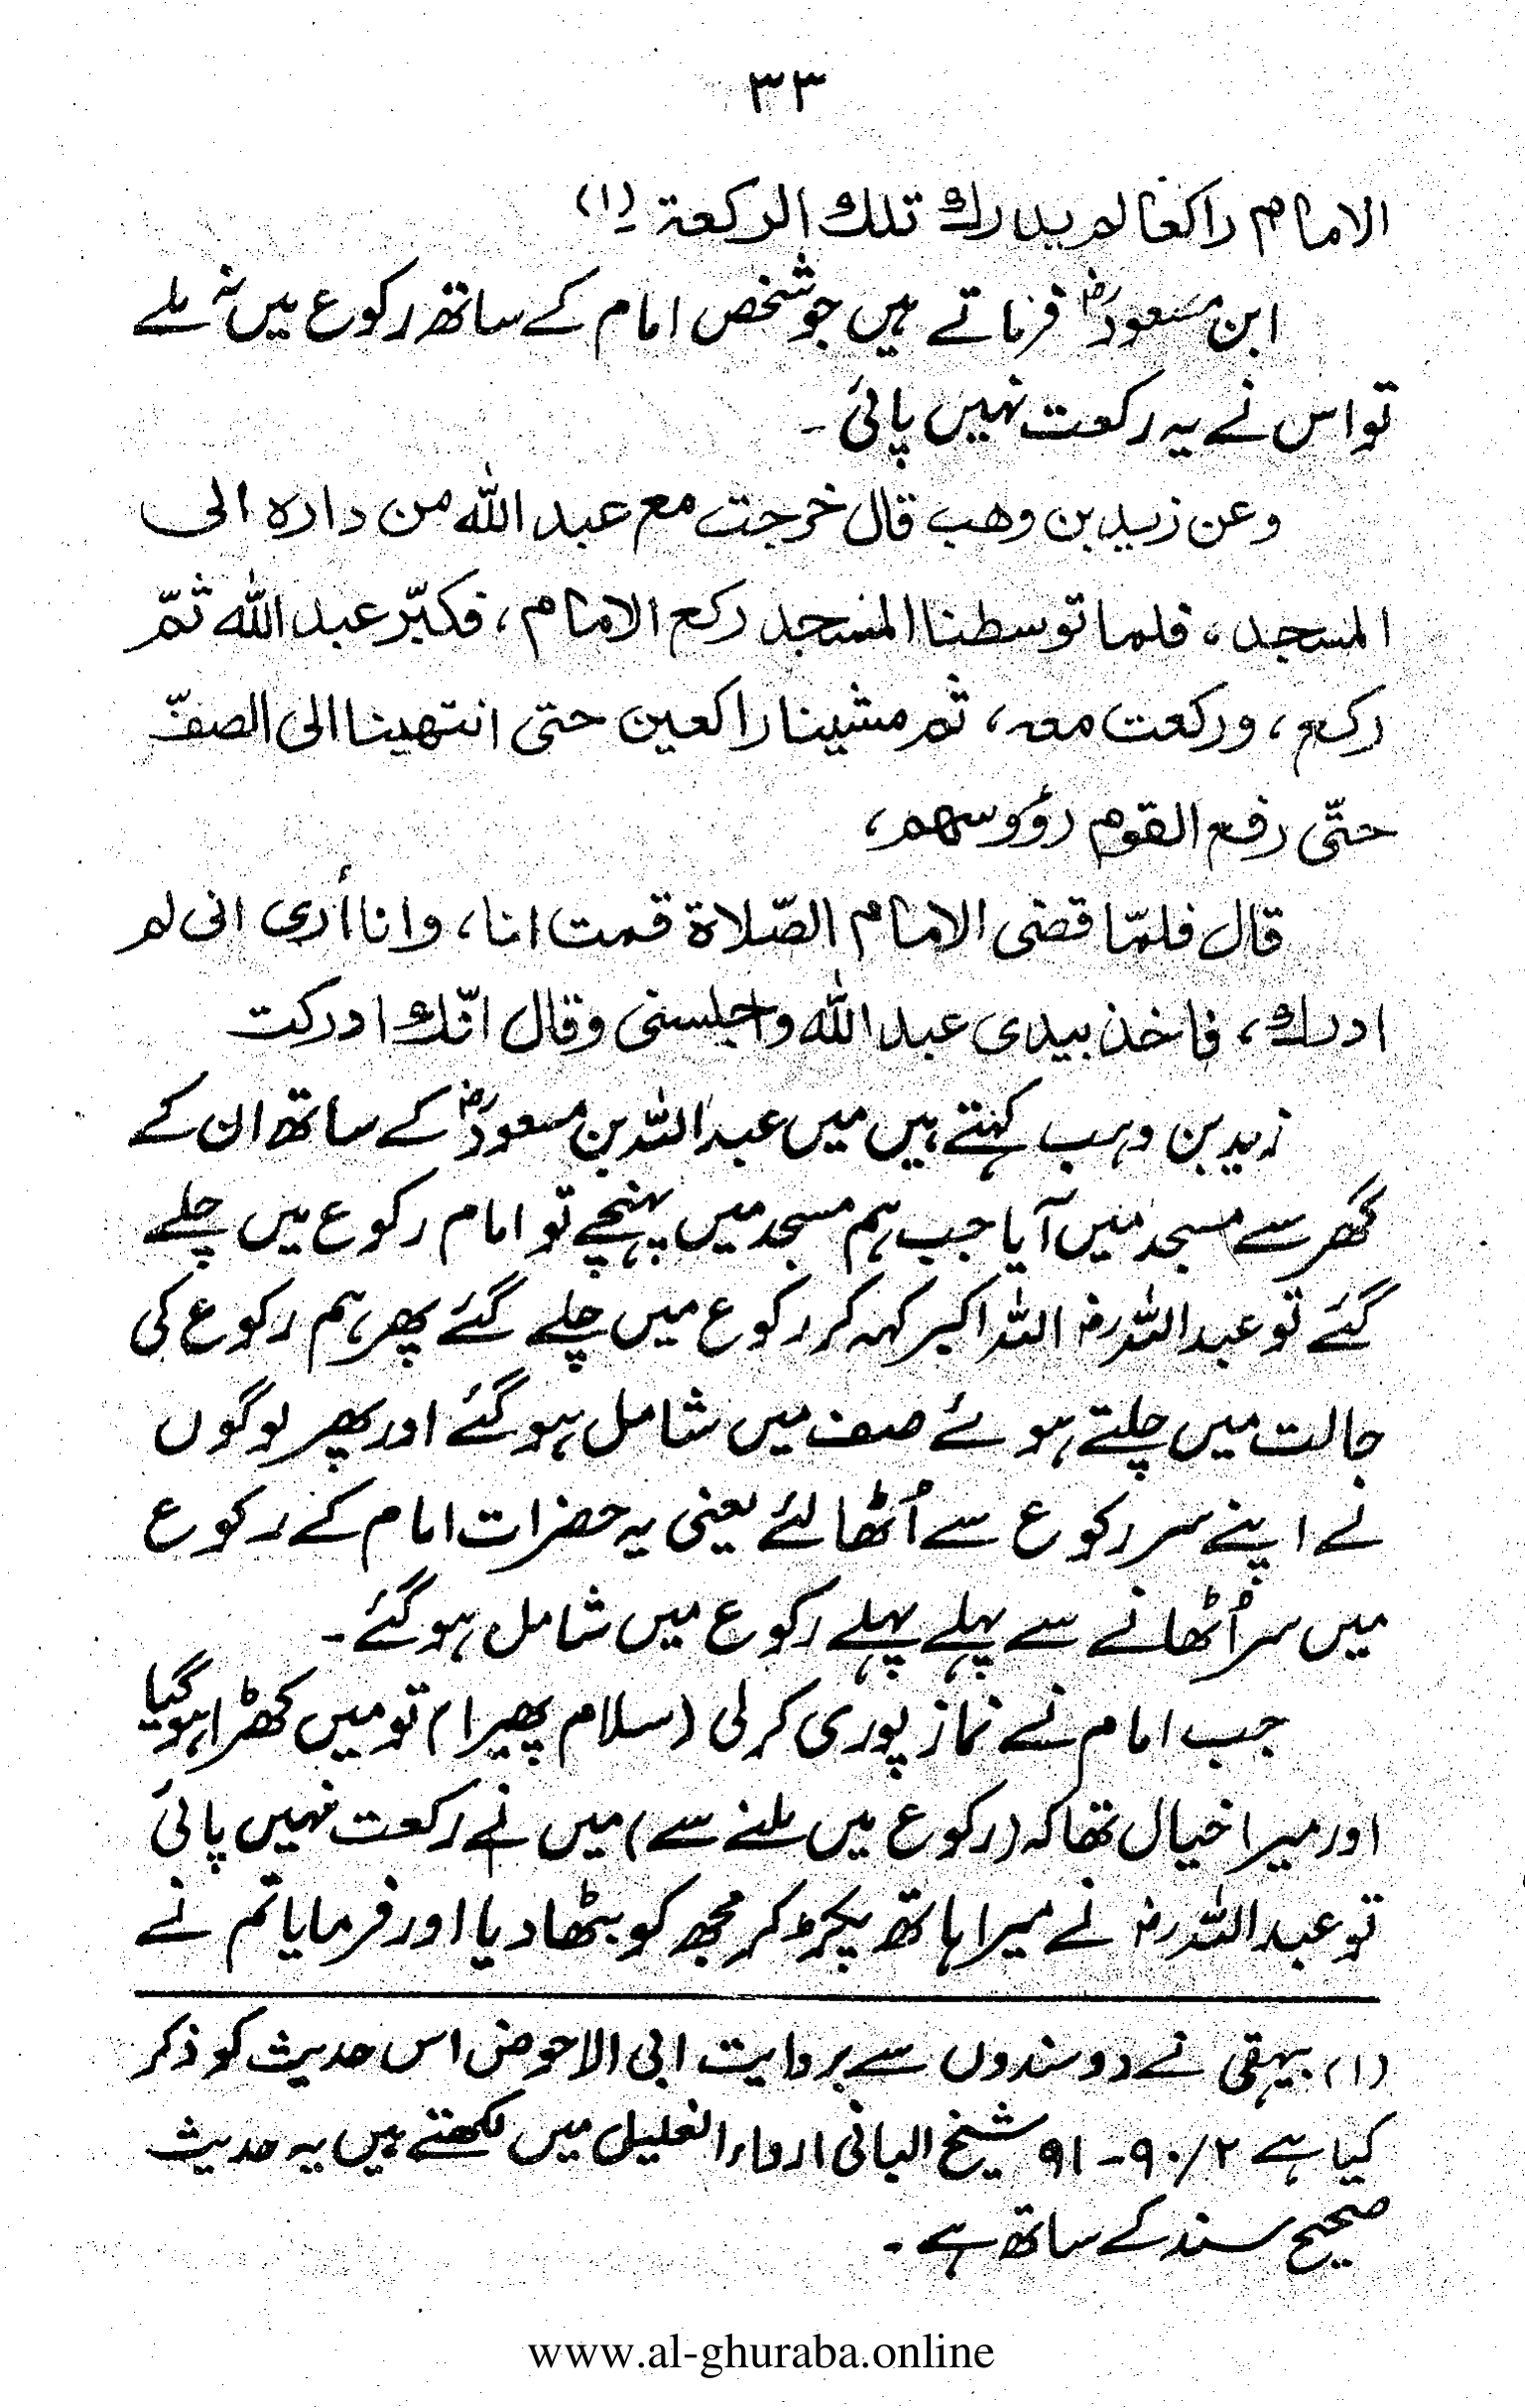 ۳۳
الامام راكعا لم يدرك تلك الركعة ۔ (۱)
ابن مسعودؓ فرماتے ہیں جو شخص امام کے ساتھ رکوع میں نہ ملے
تو اس نے یہ رکعت نہیں پائی ۔
وعن زيد بن وهب قال خرجت مع عبد الله من داره الى
المسجد، فلما توسطنا المسجد ركع الامام، فكبّر عبد الله ثمّ
ركع، وركعت معه، ثم مشينا راكعين حتى انتهينا الى الصفّ
حتّى رفع القوم رؤوسهم،
قال فلمّا قضى الامام الصّلاة قمت انا، وانا أرى انى لم
ادرك، فاخذ بيدى عبد الله واجلسنى وقال انّك ادركت
زید بن وہب کہتے ہیں میں عبد اللہ بن مسعودؓ کے ساتھ ان کے
گھر سے مسجد میں آیا جب ہم مسجد میں پہنچے تو امام رکوع میں چلے
گئے تو عبد اللہ رضہ اللہ اکبر کہہ کر رکوع میں چلے گئے پھر ہم رکوع کی
حالت میں چلتے ہوئے صف میں شامل ہو گئے اور پھر لوگوں
نے اپنے سر رکوع سے اُٹھا لئے یعنی یہ حضرات امام کے رکوع
میں سر اُٹھانے سے پہلے پہلے رکوع میں شامل ہو گئے ۔
جب امام نے نماز پوری کر لی (سلام پھیرا) تو میں کھڑا ہو گیا
اور میرا خیال تھا کہ (رکوع میں ملنے سے) میں نے رکعت نہیں پائی
تو عبد اللہ رضہ نے میرا ہاتھ پکڑ کر مجھ کو بٹھا دیا اور فرمایا تم نے
(۱) بیہقی نے دو سندوں سے بروایت ابی الاحوض اس حدیث کو ذکر
کیا ہے ۲/۹۰-۹۱ شیخ البانی ارواء الغلیل میں لکھتے ہیں یہ حدیث
صحیح سند کے ساتھ ہے ۔
www.al-ghuraba.online